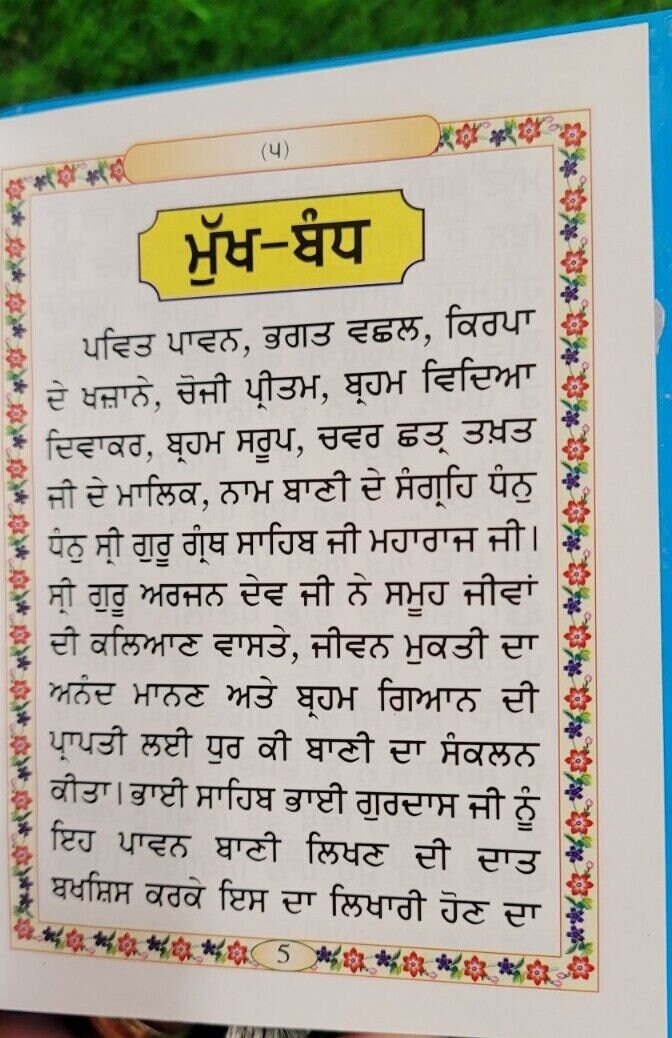 (੫)
ਮੁੱਖ-ਬੰਧ
ਪਵਿਤ ਪਾਵਨ, ਭਗਤ ਵਛਲ, ਕਿਰਪਾ
ਦੇ ਖਜ਼ਾਨੇ, ਚੋਜੀ ਪ੍ਰੀਤਮ, ਬ੍ਰਹਮ ਵਿਦਿਆ
ਦਿਵਾਕਰ, ਬ੍ਰਹਮ ਸਰੂਪ, ਚਵਰ ਛਤ੍ਰ ਤਖ਼ਤ
ਜੀ ਦੇ ਮਾਲਿਕ, ਨਾਮ ਬਾਣੀ ਦੇ ਸੰਗ੍ਰਹਿ ਧੰਨੁ
ਧੰਨੁ ਸ੍ਰੀ ਗੁਰੂ ਗ੍ਰੰਥ ਸਾਹਿਬ ਜੀ ਮਹਾਰਾਜ ਜੀ।
ਸ੍ਰੀ ਗੁਰੂ ਅਰਜਨ ਦੇਵ ਜੀ ਨੇ ਸਮੂਹ ਜੀਵਾਂ
ਦੀ ਕਲਿਆਣ ਵਾਸਤੇ, ਜੀਵਨ ਮੁਕਤੀ ਦਾ
ਅਨੰਦ ਮਾਨਣ ਅਤੇ ਬ੍ਰਹਮ ਗਿਆਨ ਦੀ
ਪ੍ਰਾਪਤੀ ਲਈ ਧੁਰ ਕੀ ਬਾਣੀ ਦਾ ਸੰਕਲਨ
ਕੀਤਾ। ਭਾਈ ਸਾਹਿਬ ਭਾਈ ਗੁਰਦਾਸ ਜੀ ਨੂੰ
ਇਹ ਪਾਵਨ ਬਾਣੀ ਲਿਖਣ ਦੀ ਦਾਤ
ਬਖਸ਼ਿਸ ਕਰਕੇ ਇਸ ਦਾ ਲਿਖਾਰੀ ਹੋਣ ਦਾ
5